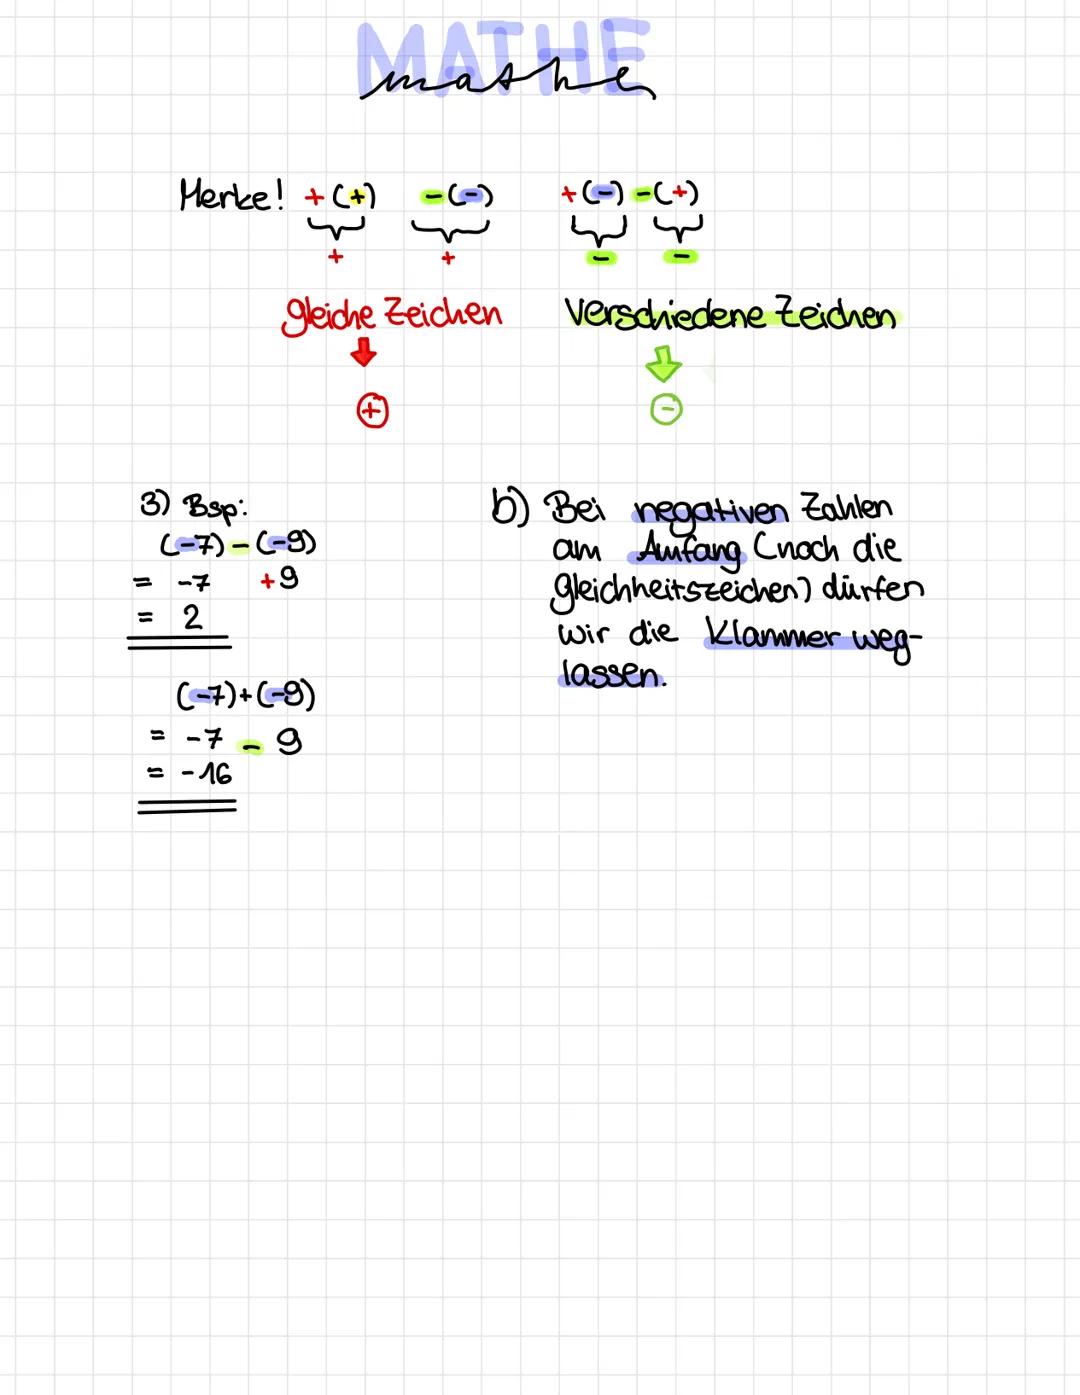 MATHE
mathe
Merke! +(+) -(-) +(-) -(+)
+ + - -
gleiche Zeichen verschiedene Zeichen
+ -
3) Bsp:
(-7)-(-9)
= -7 +9
= 2
(-7)+(-9)
= -7 - 9
= -16
b) Bei negativen Zahlen
am Amfang (noch die
gleichheitszeichen) dürfen
wir die Klammer weg-
lassen.